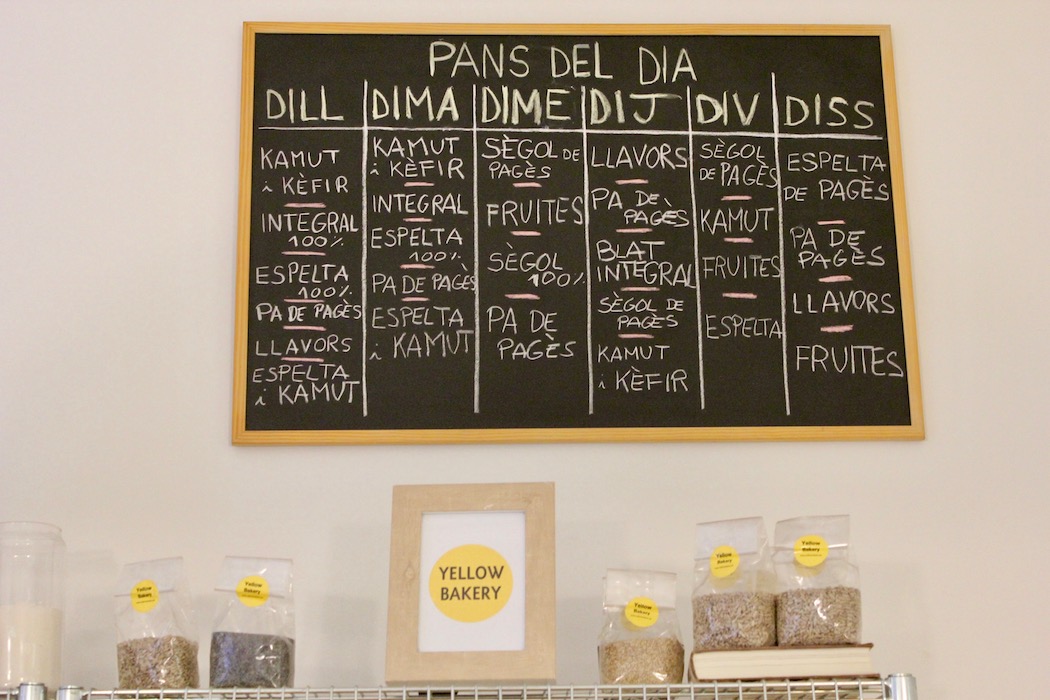 PANS DEL DIA
DILL
KAMUT
i KÈFIR
INTEGRAL
100%
ESPELTA
100%
PA DE PAGÈS
LLAVORS
ESPELTA
i KAMUT
DIMA
KAMUT
i KÈFIR
INTEGRAL
ESPELTA
100%
PA DE PAGÈS
ESPELTA
i KAMUT
DIME
SÈGOL DE
PAGÈS
FRUITES
SÈGOL
100%
PA DE
PAGÈS
DIJ
LLAVORS
PA DE
PAGÈS
BLAT
INTEGRAL
SÈGOL DE
PAGÈS
KAMUT
i KÈFIR
DIV
SÈGOL
DE PAGÈS
KAMUT
FRUITES
ESPELTA
DISS
ESPELTA
DE PAGÈS
PA DE
PAGÈS
LLAVORS
FRUITES
Yellow
Bakery
Yellow
Bakery
YELLOW
BAKERY
Yellow
Bakery
Yellow
Bakery
Yellow
Bakery